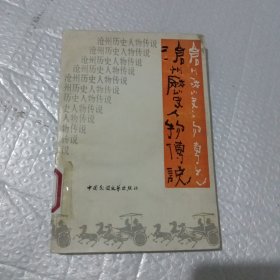 沧州历史人物传说
沧州历史人物传说
沧州历史人物传说
沧州历史人物传说
沧州历史人物传说
州历史人物传说
历史人物传说
史人物传说
人物传说
物传说
传说
说
沧州歷史人物傳說
中国民间文艺出版社